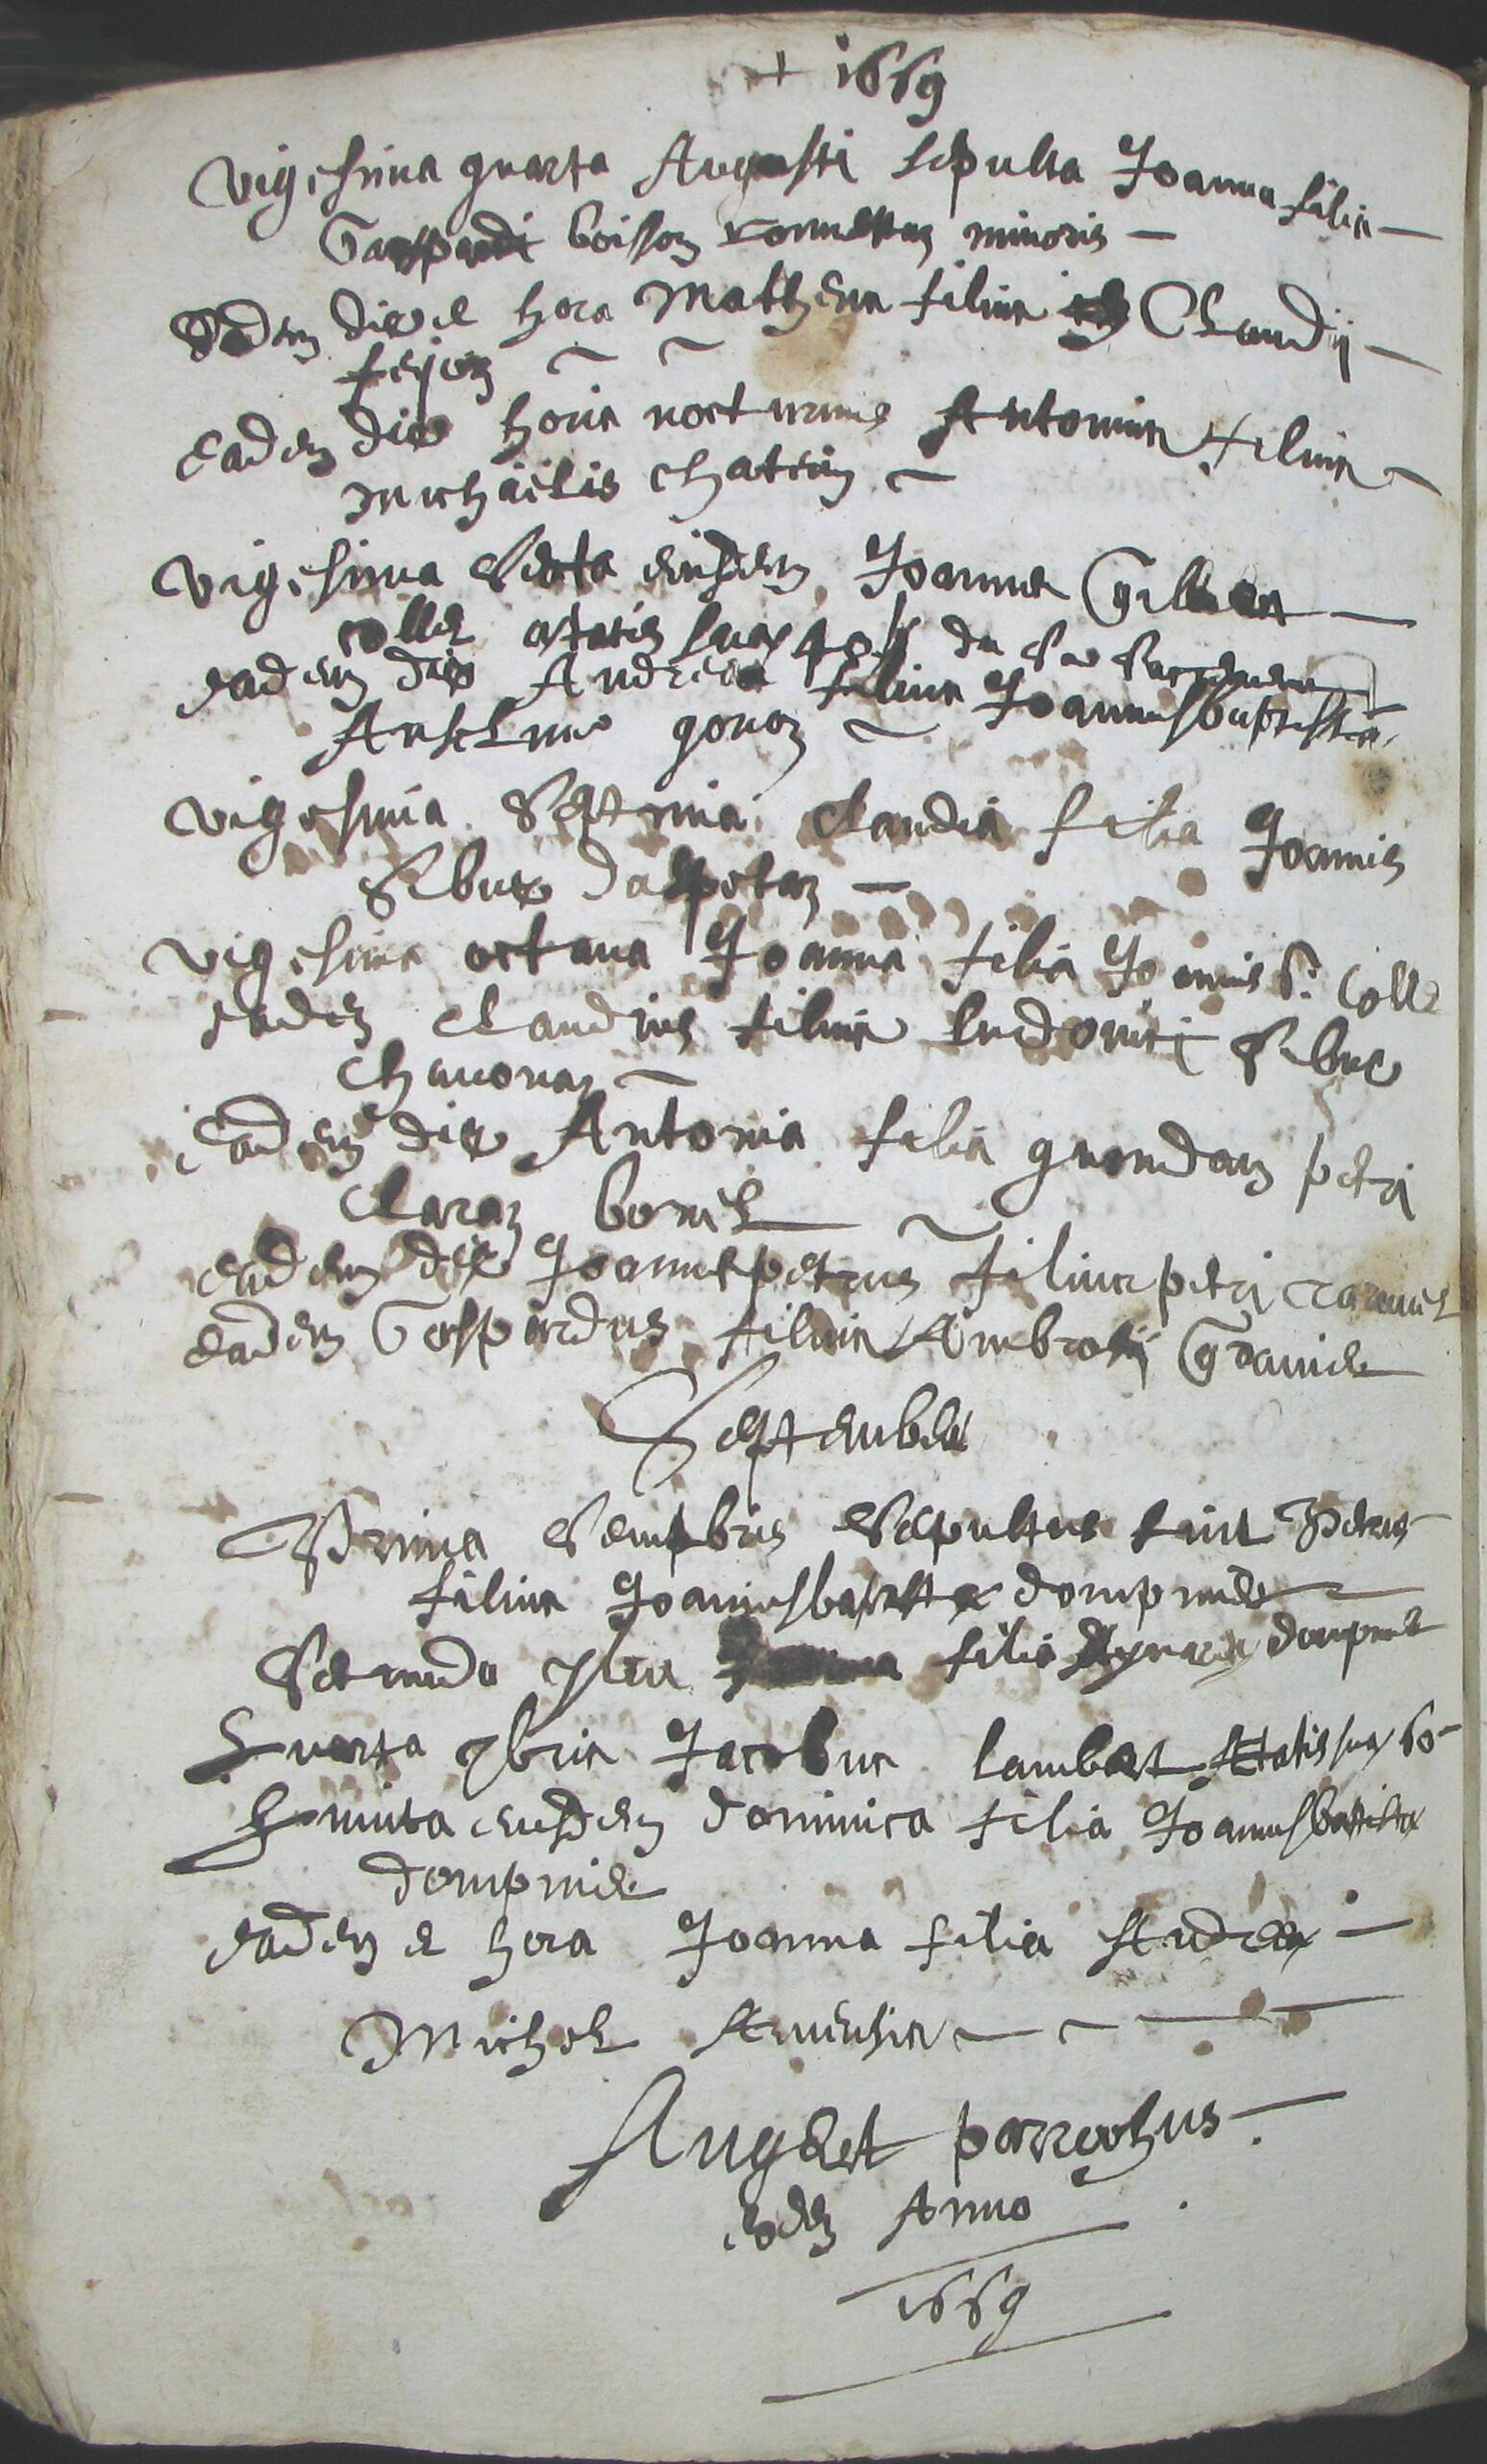 + 1669
Vigesima quarta Augusti sepulta Joanna filia
Gaspardi boisson minoris
Eadem die et hora Matheus filius Claudij
fejoz
Eadem die horis nocturnis Antonius filius
Michaelis chatein
Vigesima Sexta eiusdem Joannes
Collet ætatis suæ 40
eadem die Andreas filius Joannisbaptistæ
Anselme gonoz
Vigesima Septima Claudia filia Joannis
Sibue
Vigesima octava Joanna filia Joannis S. Colle
eadem Claudius filius Ludovici Sibue
Chavonaz
Eadem die Antonia filia quondam petri
Claraz bonel
eadem die Joannespetrus filius petri
eadem Gaspardus filius Ambrosij Grange
September
Prima Septembris Sepultus fuit Petrus
filius Joannisbaptistæ dompnier
Secunda filia dompnier
Quarta 7bris Jacobus lambert Ætatis suæ 60
Quinta eiusdem dominica filia Joannisbaptistæ
dompnier
eadem et hora Joanna filia Andreæ
Michel
Anget parrochus
eodem Anno
1669